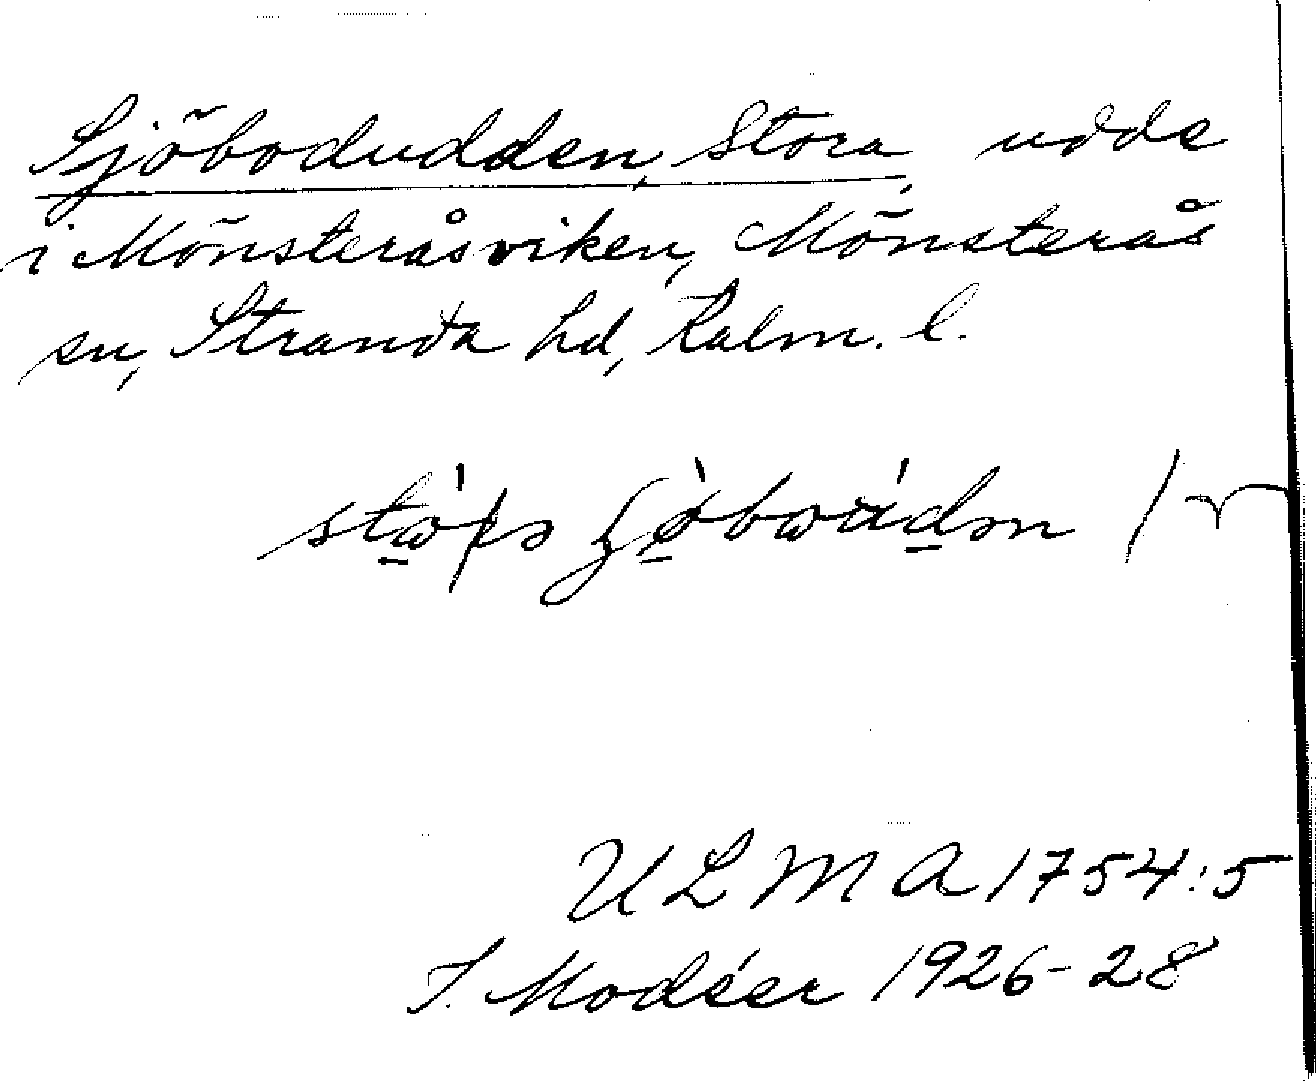 Sjöbodudden, Stora, udde
i Mönsteråsviken, Mönsterås
sn, Stranda hd, Kalm. l.
ULMA 1754:5
I. Modéer 1926-28